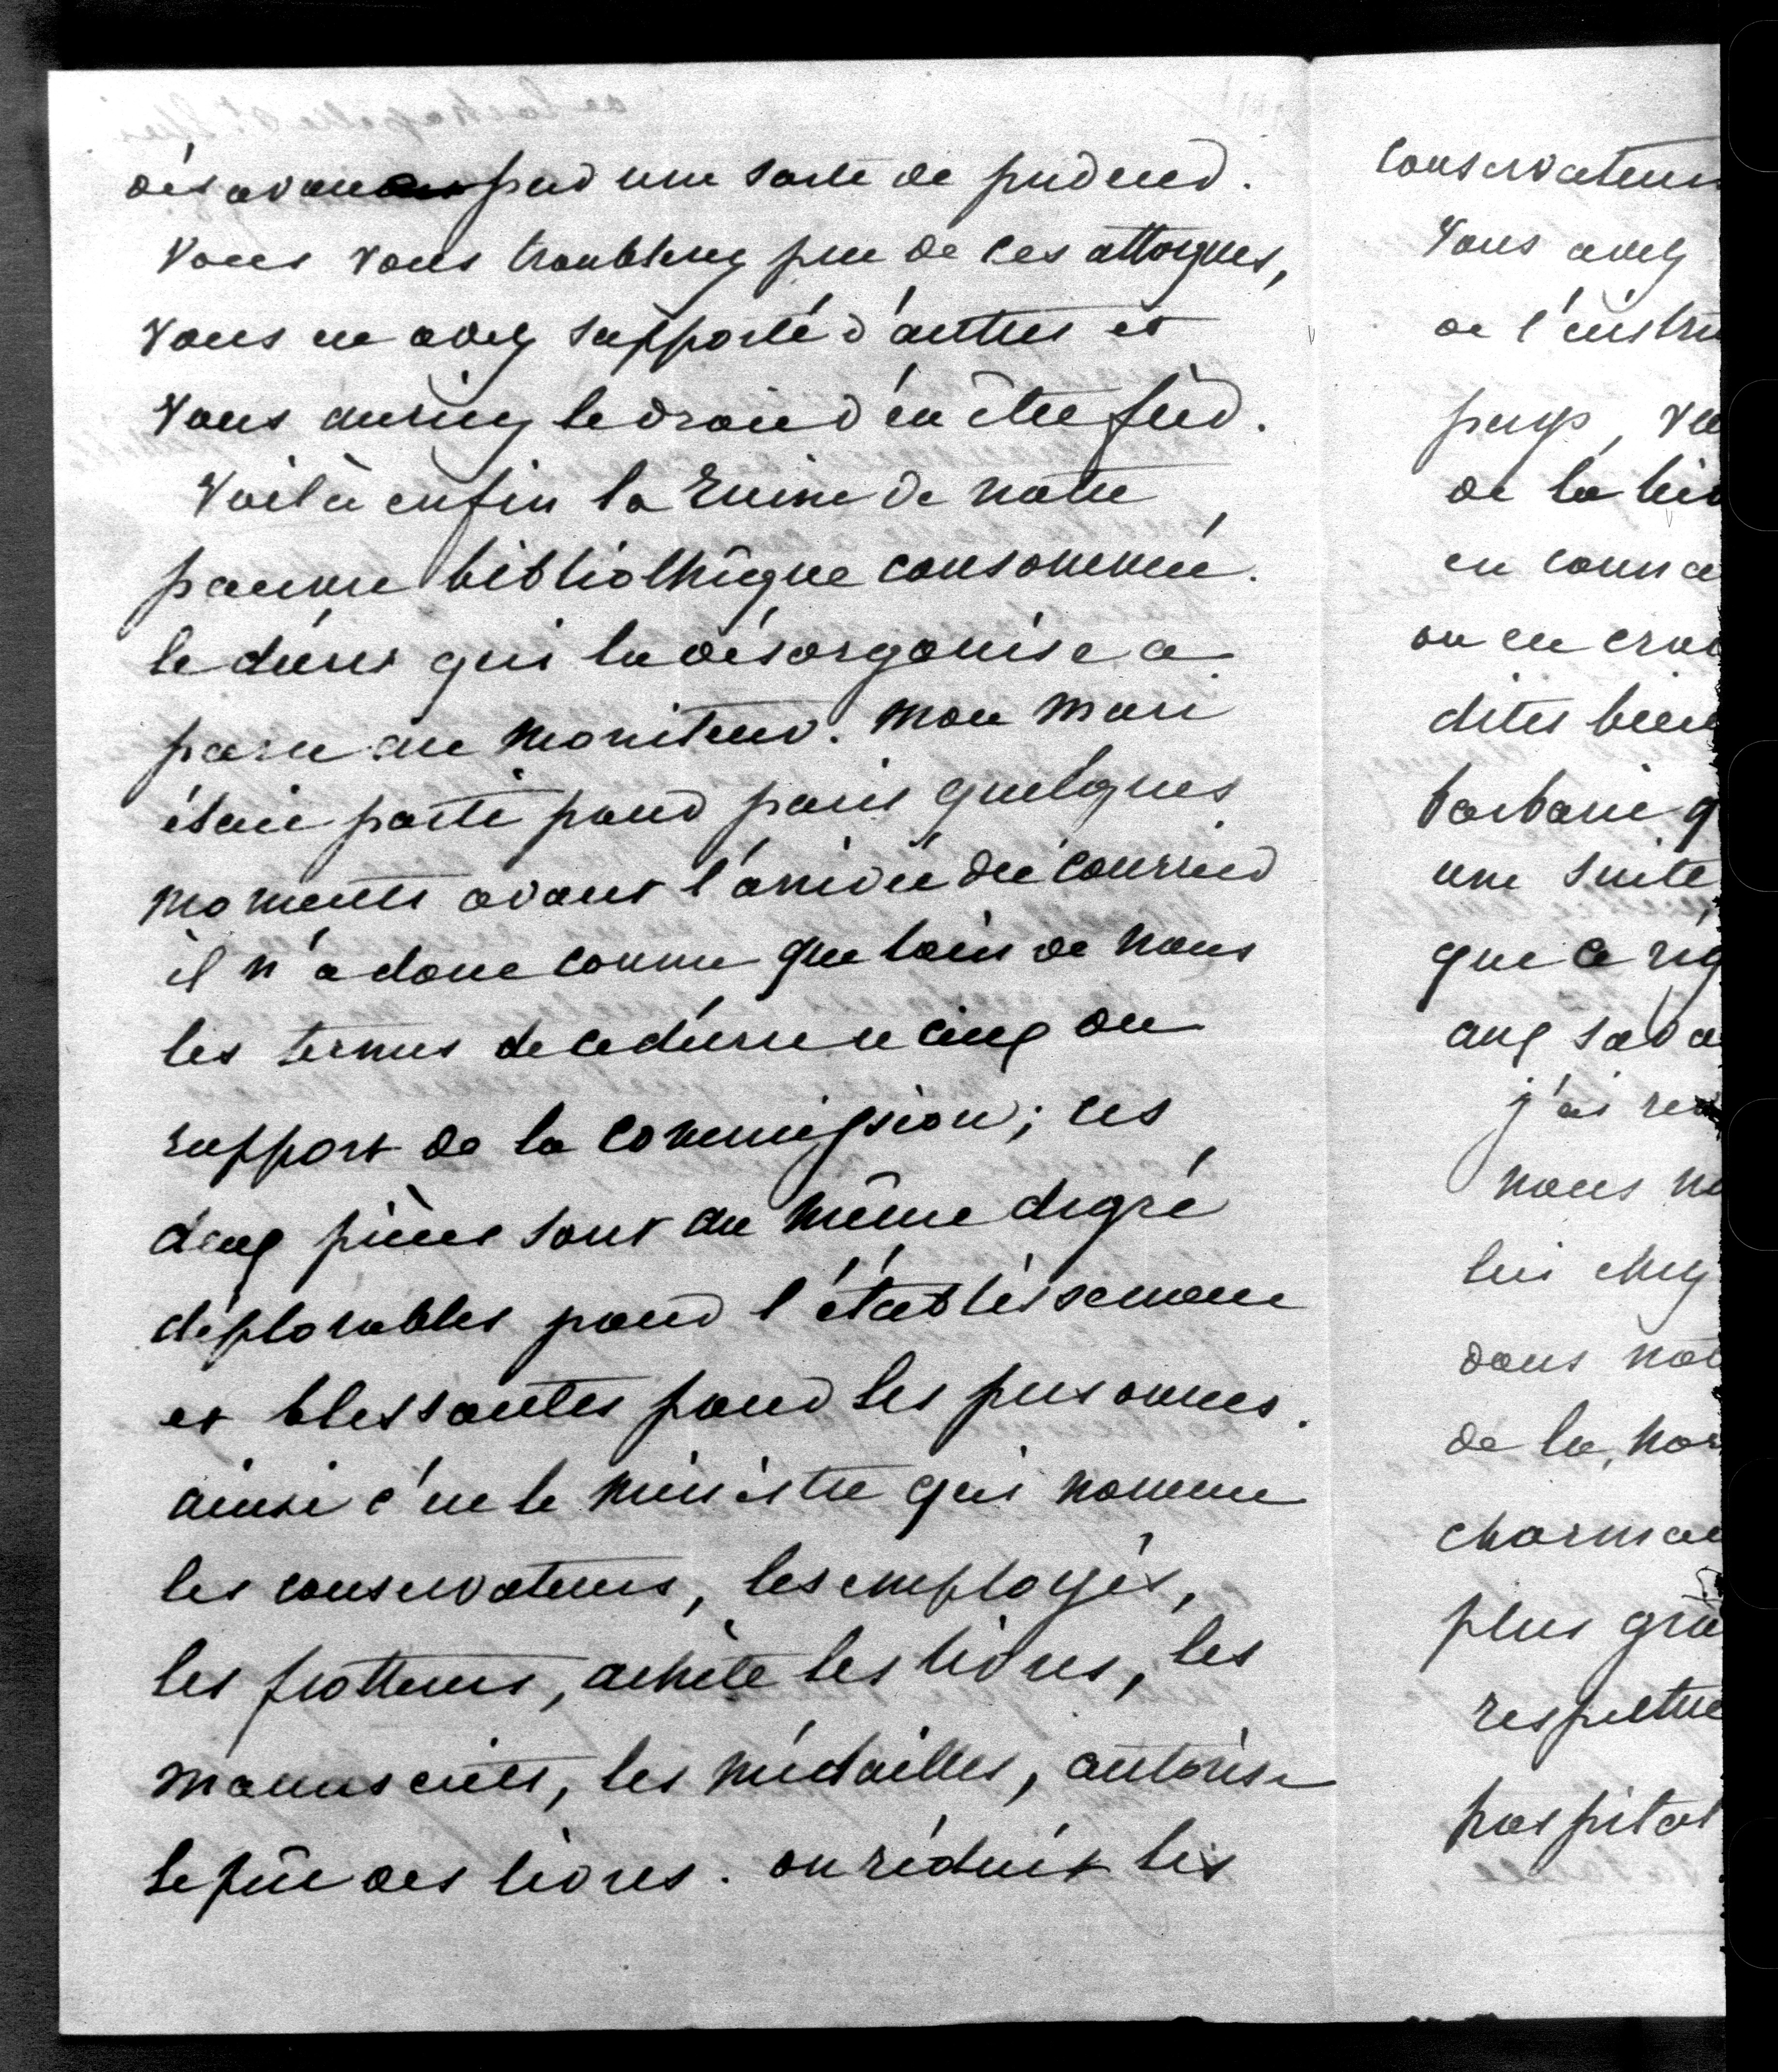 par une sorte de pudeur.
Vous vous troublerez peu de ces attaques,
vous en avez supporté d'autres et
vous auriez le droit d'en être fier.
Voilà enfin la Ruine de notre
pauvre bibliothèque consommée.
le décret qui la désorganise a
paru au Moniteur. Mon Mari
était parti pour paris quelques
moments avant l'arrivée du courrier
il n'a donc connu que loin de nous
les termes de ce décret et ceux du
rapport de la Commission; ces
deux pièces sont au même degré
déplorables pour l'établissement
et blessantes pour les personnes.
ainsi c'est le ministre qui nomme
les conservateurs, les employés,
les frotteurs, achète les livres, les
manuscrits, les médailles, autorise
le prêt des livres. on réduit les
conservateurs
Vous avez
de l'instru
pays, vou
de la bib
en conna
on en croi
dites bien
barbarie q
une suite
que ce rég
aux sava
j'ai
nous
lui chez
dans not
de la, nor
charman
plus gra
respectue
hospital